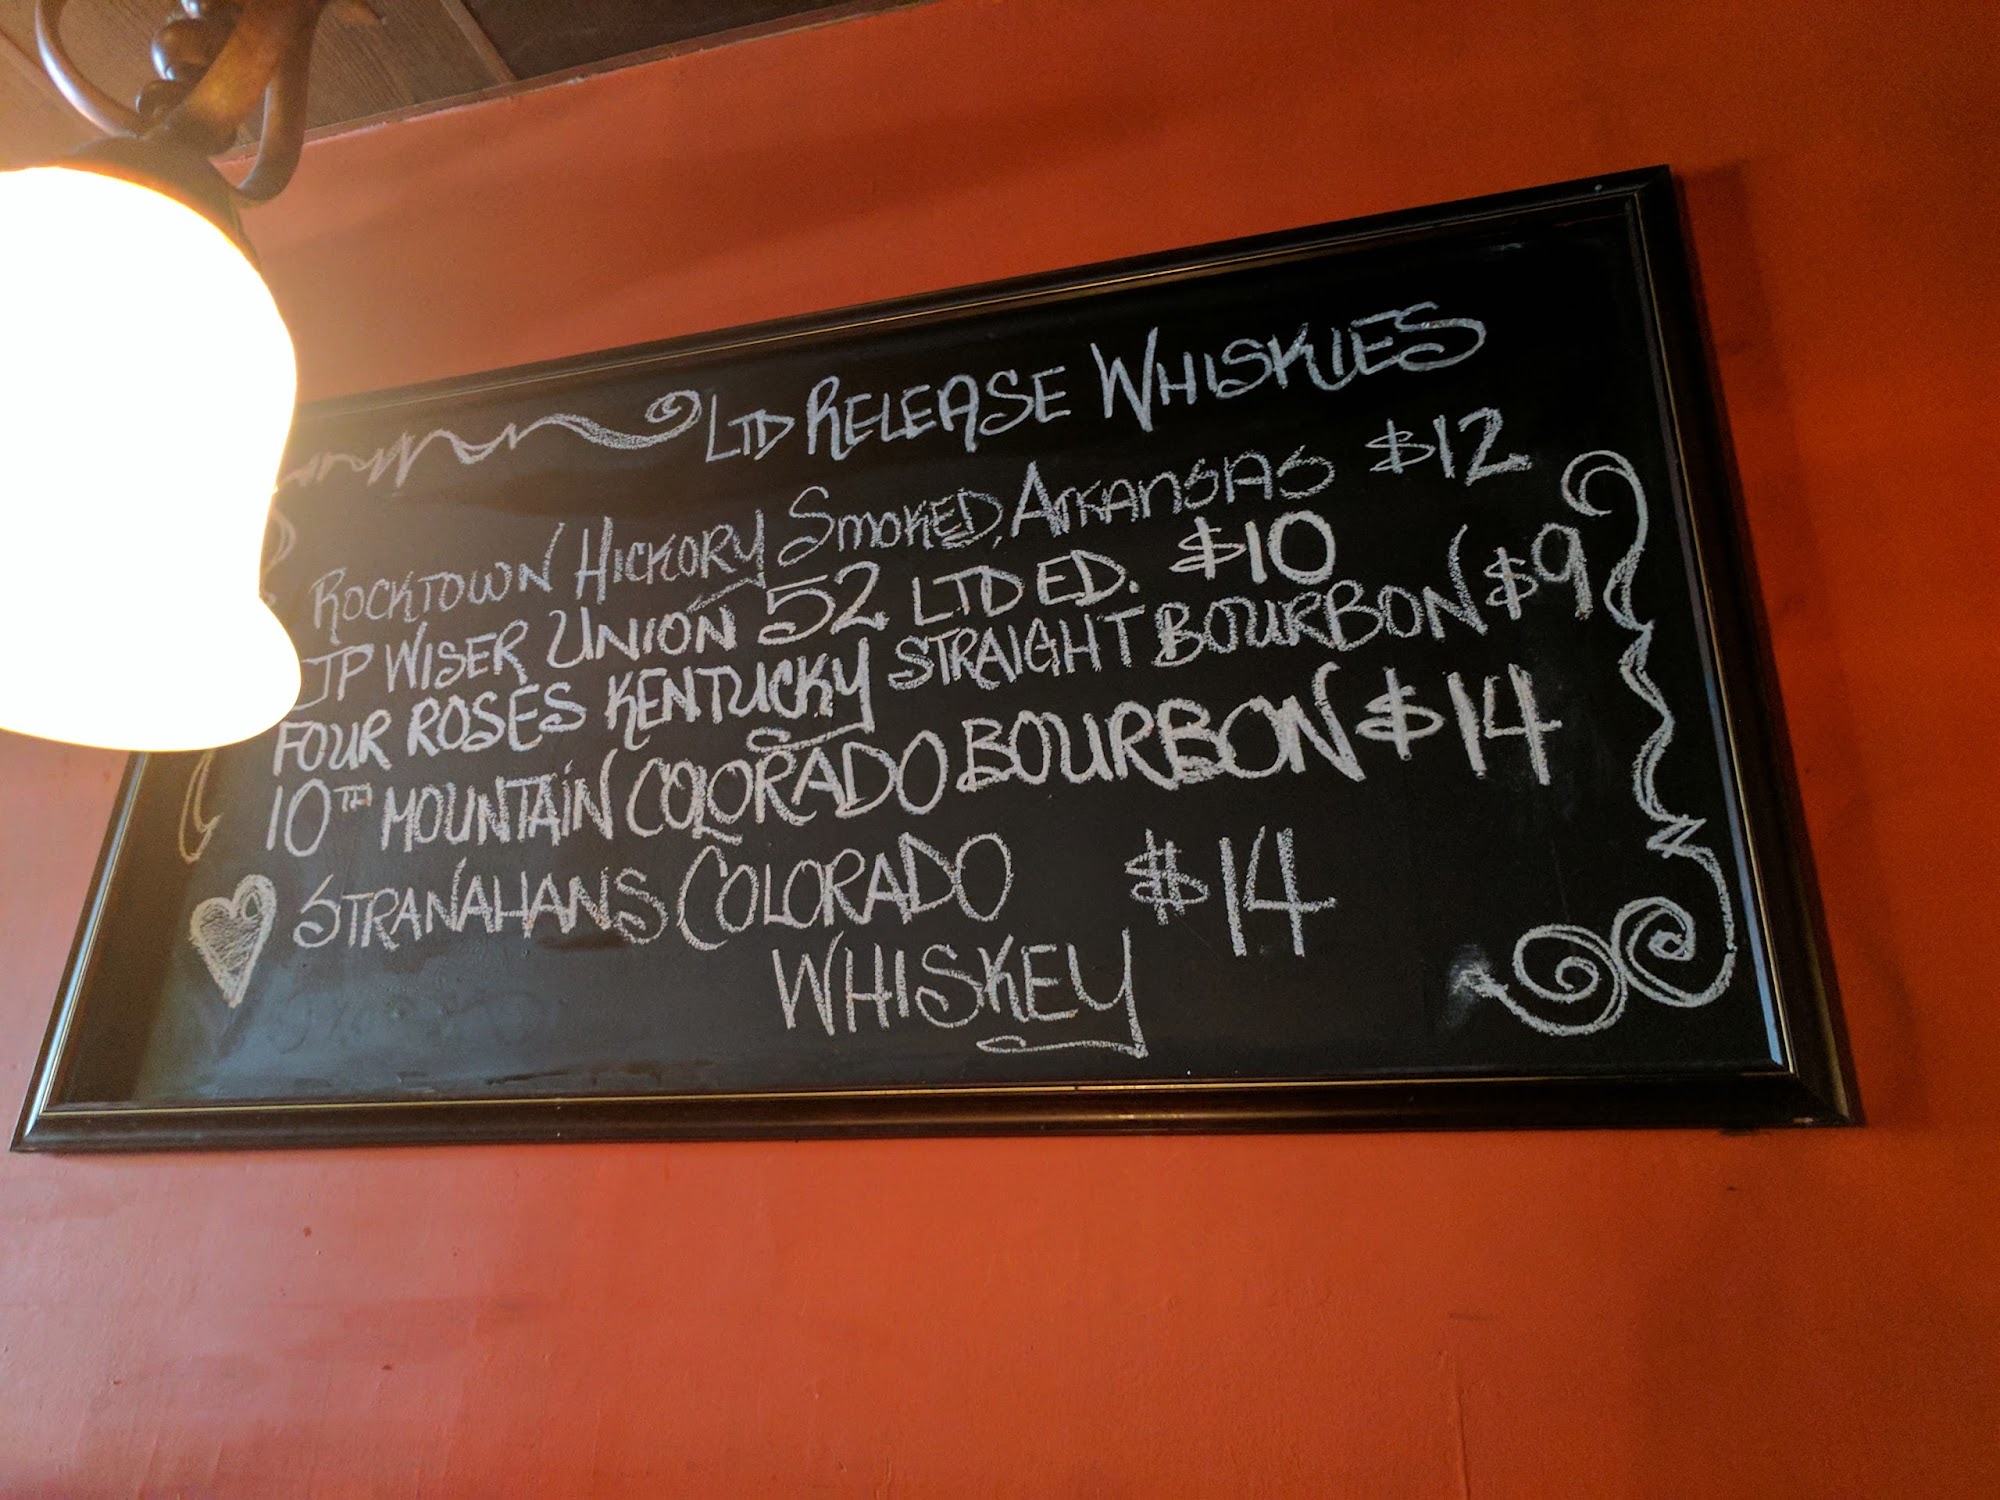 LTD RELEASE WHISKIES
ROCKTOWN HICKORY SMOKED, ARKANSAS $12
JP WISER UNION 52 LTD ED. $10
FOUR ROSES KENTUCKY STRAIGHT BOURBON $9
10TH MOUNTAIN COLORADO BOURBON $14
STRANAHANS COLORADO $14
WHISKEY